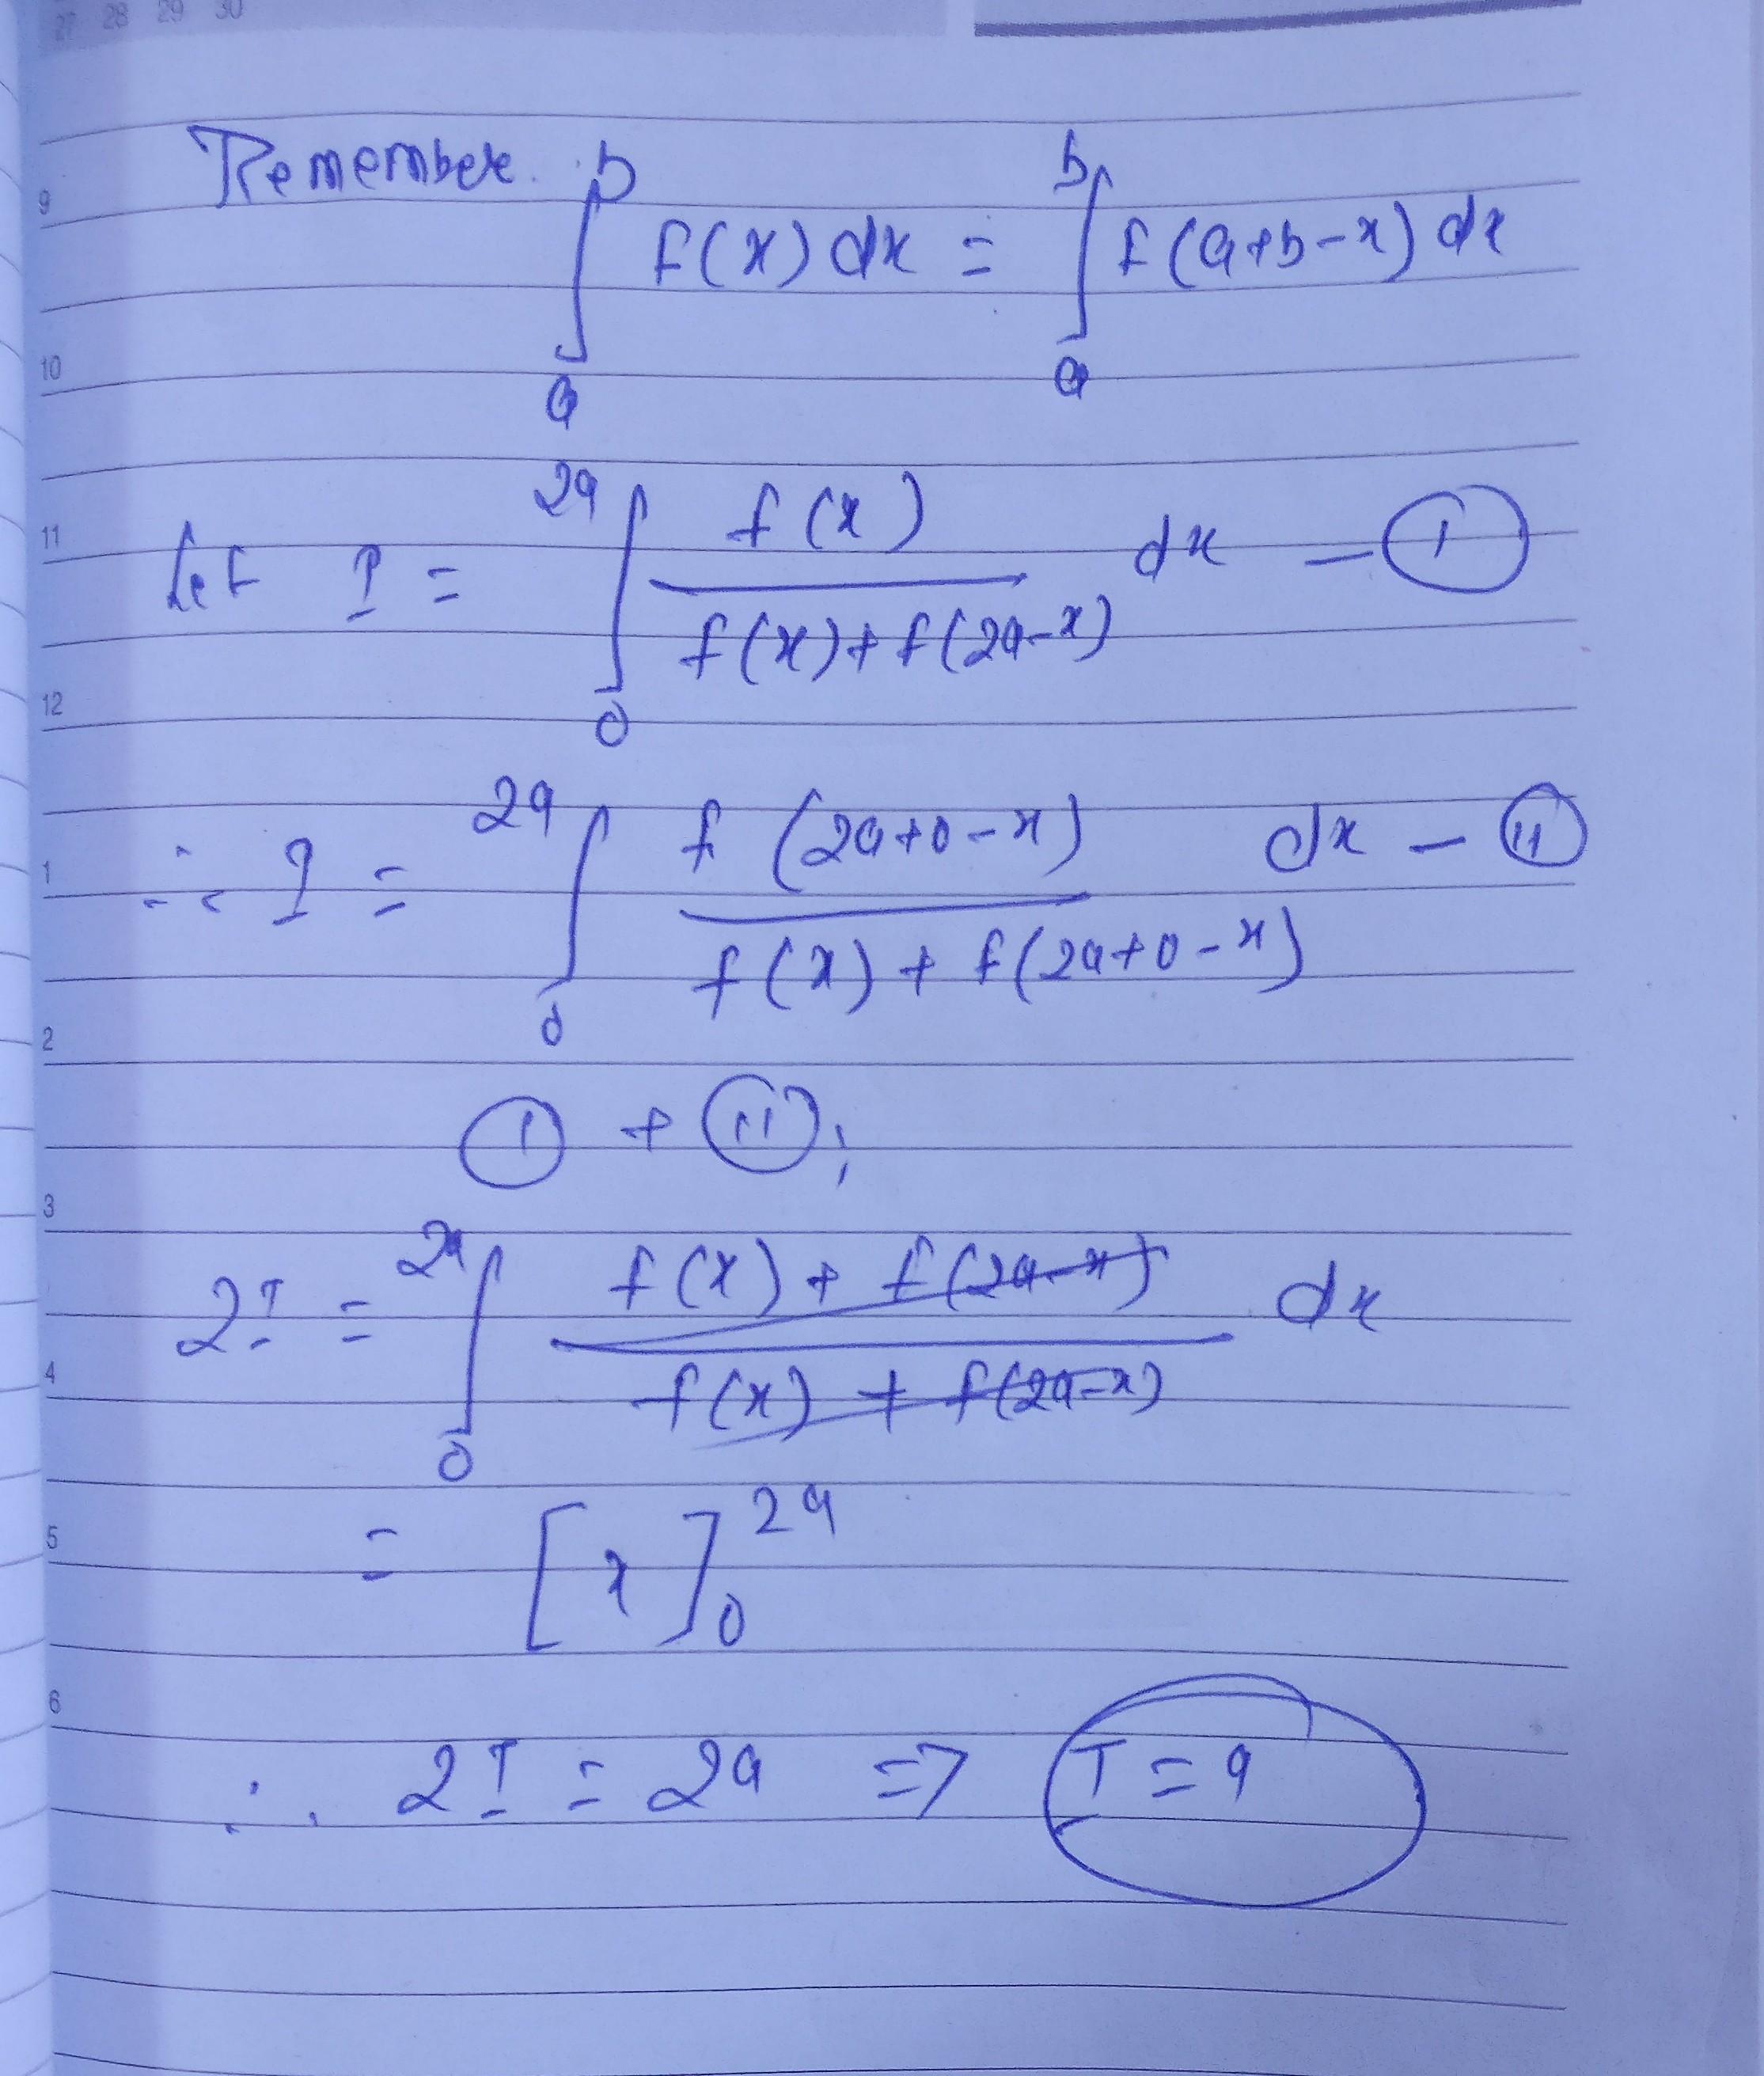 27 28 29 30
Remember. ∫_a^b f(x) dx = ∫_a^b f(a+b-x) dx
9
10
11
Let I = ∫_0^{2a} f(x) / (f(x)+f(2a-x)) dx — (I)
12
1
∴ I = ∫_0^{2a} f(2a+0-x) / (f(x) + f(2a+0-x)) dx — (II)
2
(I) + (II);
3
2I = ∫_0^{2a} (f(x) + f(2a-x)) / (f(x) + f(2a-x)) dx
4
5
= [x]_0^{2a}
6
∴ 2I = 2a => I = a